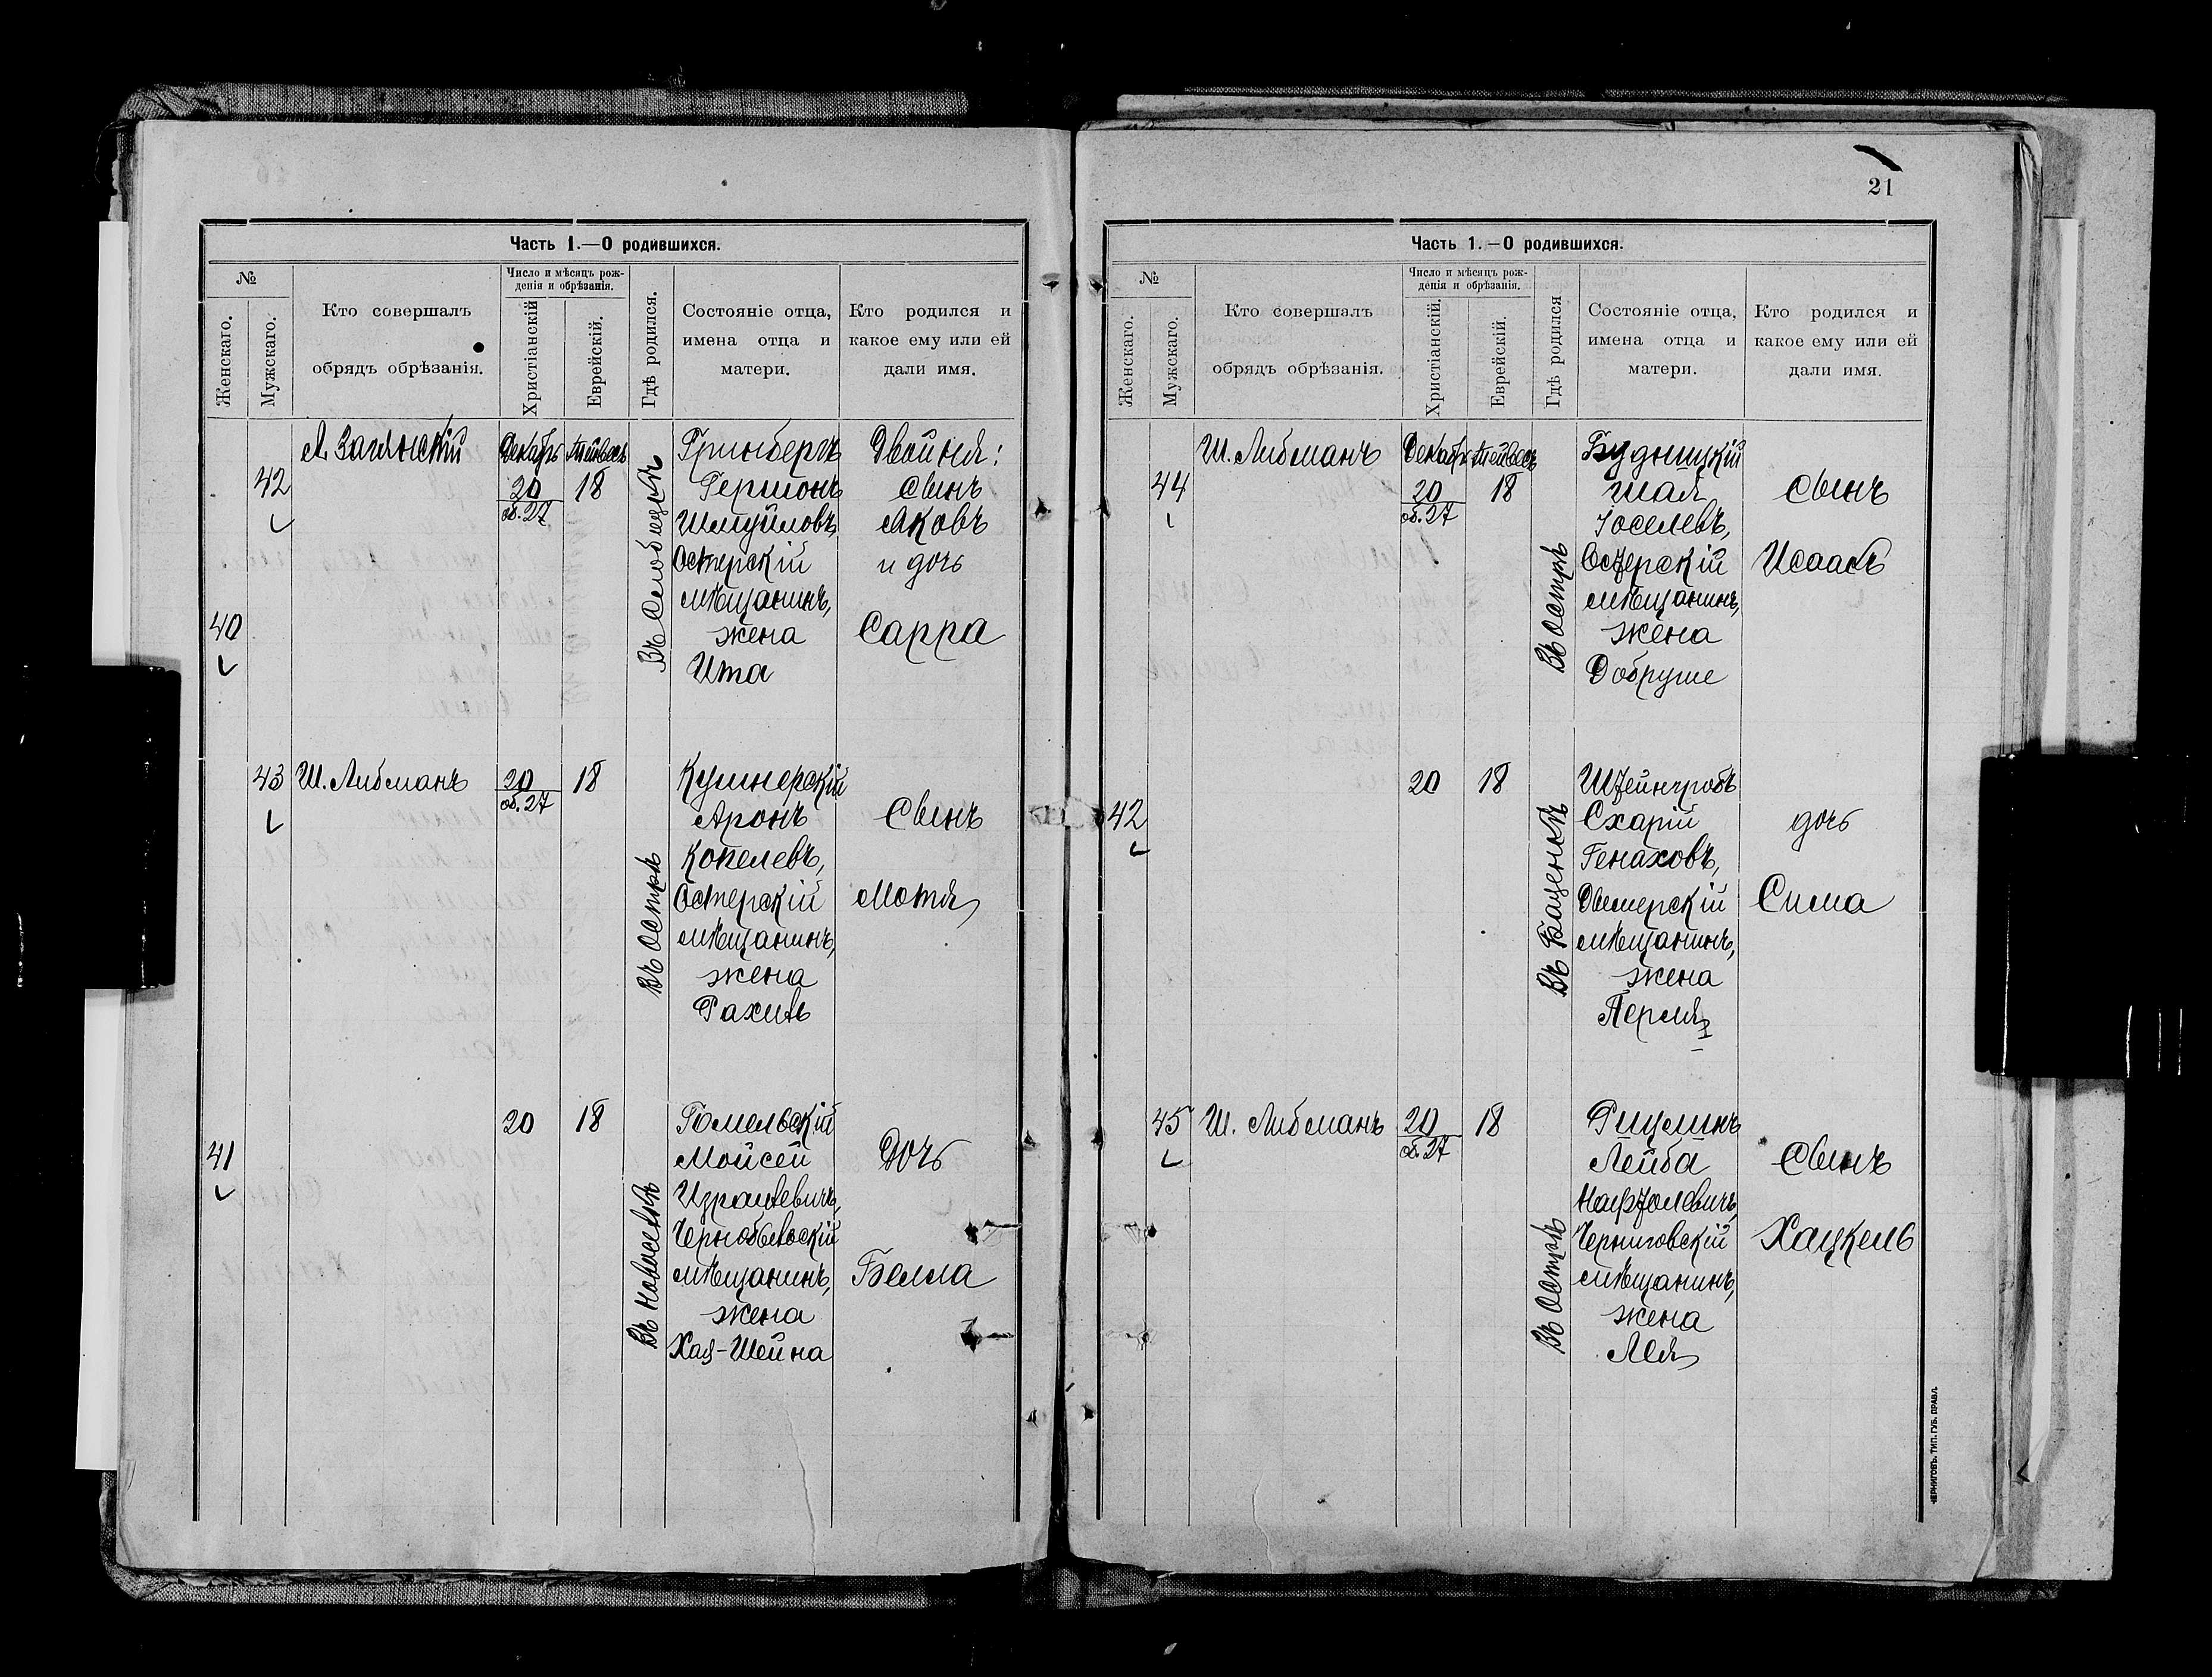 Часть 1.—О родившихся.
№
Женскаго.
Мужскаго.
Кто совершалъ
обрядъ обрѣзанія.
Число и мѣсяцъ рож-
денія и обрѣзанія.
Христіанскій
Еврейскій.
Гдѣ родился.
Состояніе отца,
имена отца и
матери.
Кто родился и
какое ему или ей
дали имя.
42
40
Декабрь
20
об. 27
Тейвесъ
18
Гринбергъ
Гершонъ
Шмуйловъ,
Остерскій
мѣщанинъ,
жена
Ита
Двойня:
сынъ
Яковъ
и дочь
Сарра
43
Ш. Либманъ
20
об. 27
18
Въ Острѣ
Кушнерскій
Аронъ
Копелевъ,
Остерскій
мѣщанинъ,
жена
Рахиль
Сынъ
Мотя
41
20
18
Въ Новоселкѣ
Гомельскій
Мойсей
Израилевичъ,
Чернобыльскій
мѣщанинъ,
жена
Хая-Шейна
Дочь
Белла
21
Часть 1.—О родившихся.
№
Женскаго.
Мужскаго.
Кто совершалъ
обрядъ обрѣзанія.
Число и мѣсяцъ рож-
денія и обрѣзанія.
Христіанскій.
Еврейскій.
Гдѣ родился
Состояніе отца,
имена отца и
матери.
Кто родился и
какое ему или ей
дали имя.
44
Ш. Либманъ
Декабрь
20
об. 27
Тейвесъ
18
Въ Острѣ
Будницкій
Шая
Іоселевъ,
Остерскій
мѣщанинъ,
жена
Добруше
сынъ
Исаакъ
42
20
18
Штейнгробъ
Схарій
Генаховъ,
мѣщанинъ,
жена
Перля
дочь
Сима
45
Ш. Либманъ
20
об. 27
18
Въ Острѣ
Лейба
Нафтолевичъ,
Черниговскій
мѣщанинъ,
жена
Лея
Сынъ
Хацкель
ЧЕРНИГОВЪ. ТИП. ГУБ. ПРАВЛ.